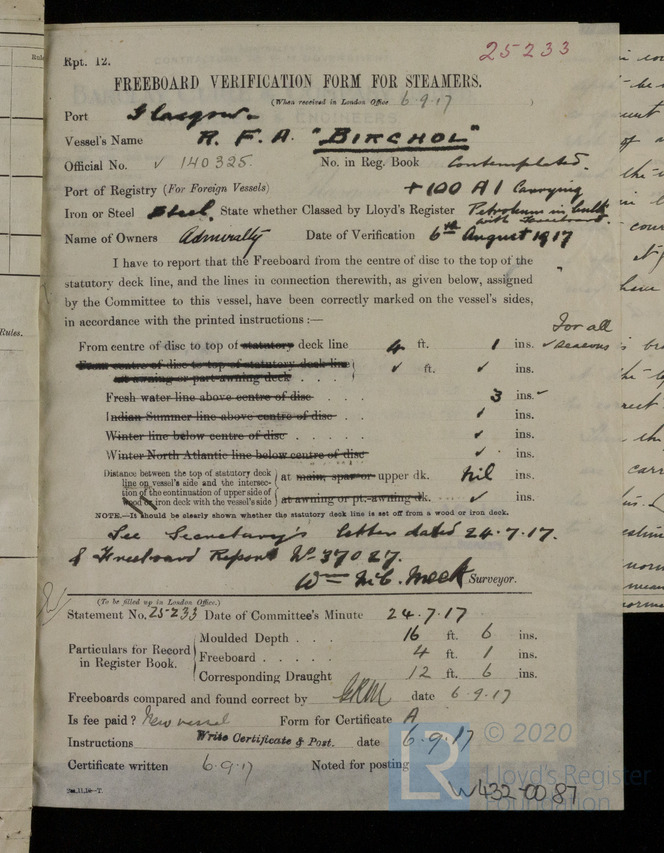 Rpt. 12.
25233
FREEBOARD VERIFICATION FORM FOR STEAMERS.
(When received in London Office 6.9.17 )
Port Glasgow
Vessel's Name R. F. A. "BIRCHOL"
Official No. ✓ 140325. No. in Reg. Book Contemplated.
Port of Registry (For Foreign Vessels) +100 A1 Carrying
Iron or Steel Steel. State whether Classed by Lloyd's Register Petroleum in bulk
with freeboard.
Name of Owners Admiralty Date of Verification 6th August 1917
I have to report that the Freeboard from the centre of disc to the top of the
statutory deck line, and the lines in connection therewith, as given below, assigned
by the Committee to this vessel, have been correctly marked on the vessel's sides,
in accordance with the printed instructions :—
For all
From centre of disc to top of statutory deck line 4 ft. 1 ins. ✓ seasons
From centre of disc to top of statutory deck line ✓ ft. ✓ ins.
at awning or part-awning deck . . . .
Fresh water line above centre of disc . . . 3 ins. ✓
Indian Summer line above centre of disc . . ✓ ins.
Winter line below centre of disc . . . . . ✓ ins.
Winter North Atlantic line below centre of disc ✓ ins.
Distance between the top of statutory deck
line on vessel's side and the intersec- at main, spar or upper dk. Nil ins.
tion of the continuation of upper side of
wood or iron deck with the vessel's side at awning or pt.-awning dk. . . . ✓ ins.
NOTE.—It should be clearly shown whether the statutory deck line is set off from a wood or iron deck.
See Secretary's letter dated 24.7.17.
& Freeboard Report No 37027.
Wm McC. Meek Surveyor.
(To be filled up in London Office.)
Statement No. 25233 Date of Committee's Minute 24.7.17
Particulars for Record in Register Book.
Moulded Depth . . . 16 ft. 6 ins.
Freeboard . . . . . 4 ft. 1 ins.
Corresponding Draught 12 ft. 6 ins.
Freeboards compared and found correct by date 6.9.17
Is fee paid? New vessel Form for Certificate A
Instructions Write Certificate & Post. date 6.9.17
Certificate written 6.9.17 Noted for posting
© 2020
LR
Lloyd's Register
Foundation
W432-0087
Rules.